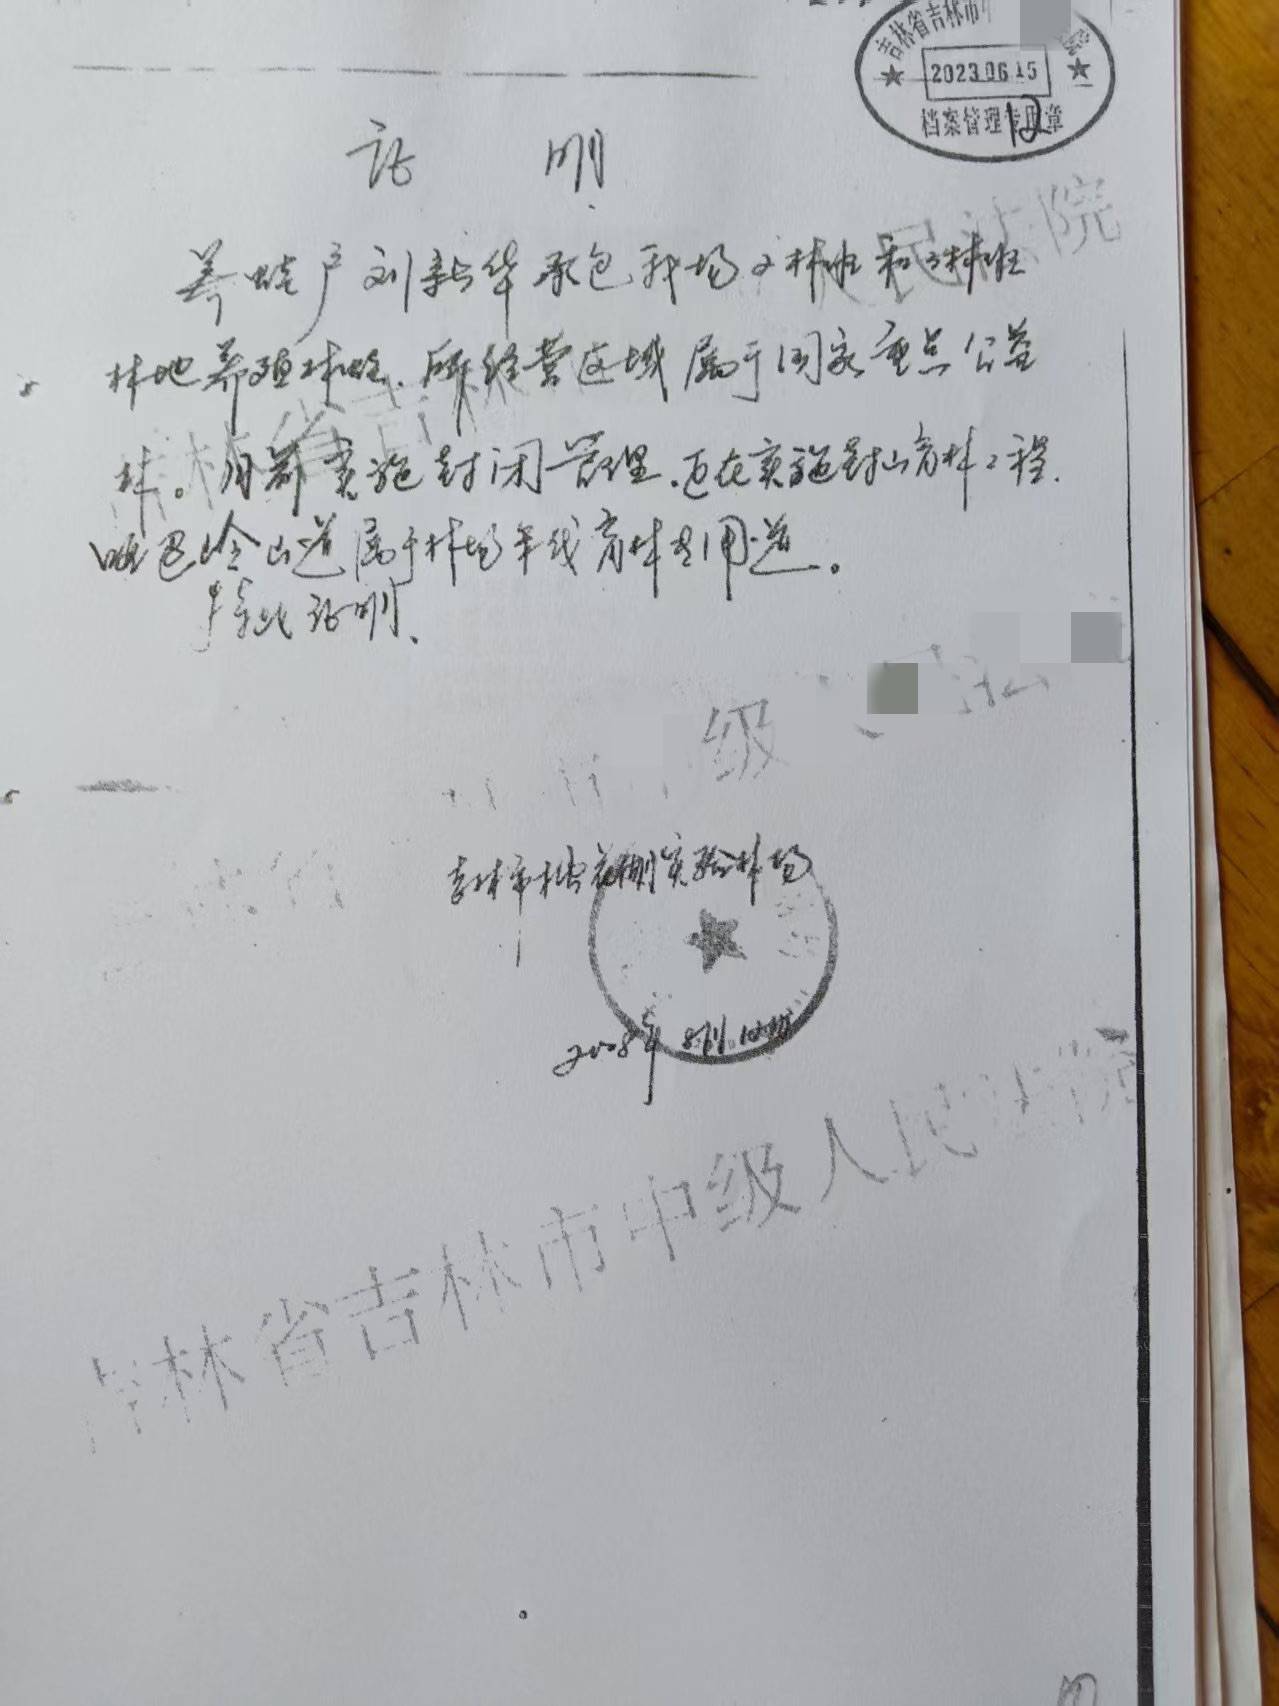 吉林省吉林市中 院
2023.06.15
档案管理专用章
12
证 明
养蛙户刘新华承包我场2林班和3林班
林地养殖林蛙.所经营区域属于国家重点公益
林。目前实施封闭管理.正在实施封山育林工程.
哑巴岭山道属于林场 育林专用道。
特此证明.
吉林市松花湖实验林场
2008年8月12日
民法院
林省吉
级 法
吉林省吉林市中级人民法院